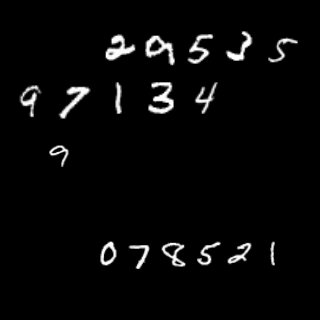 29535
97134
9
078521